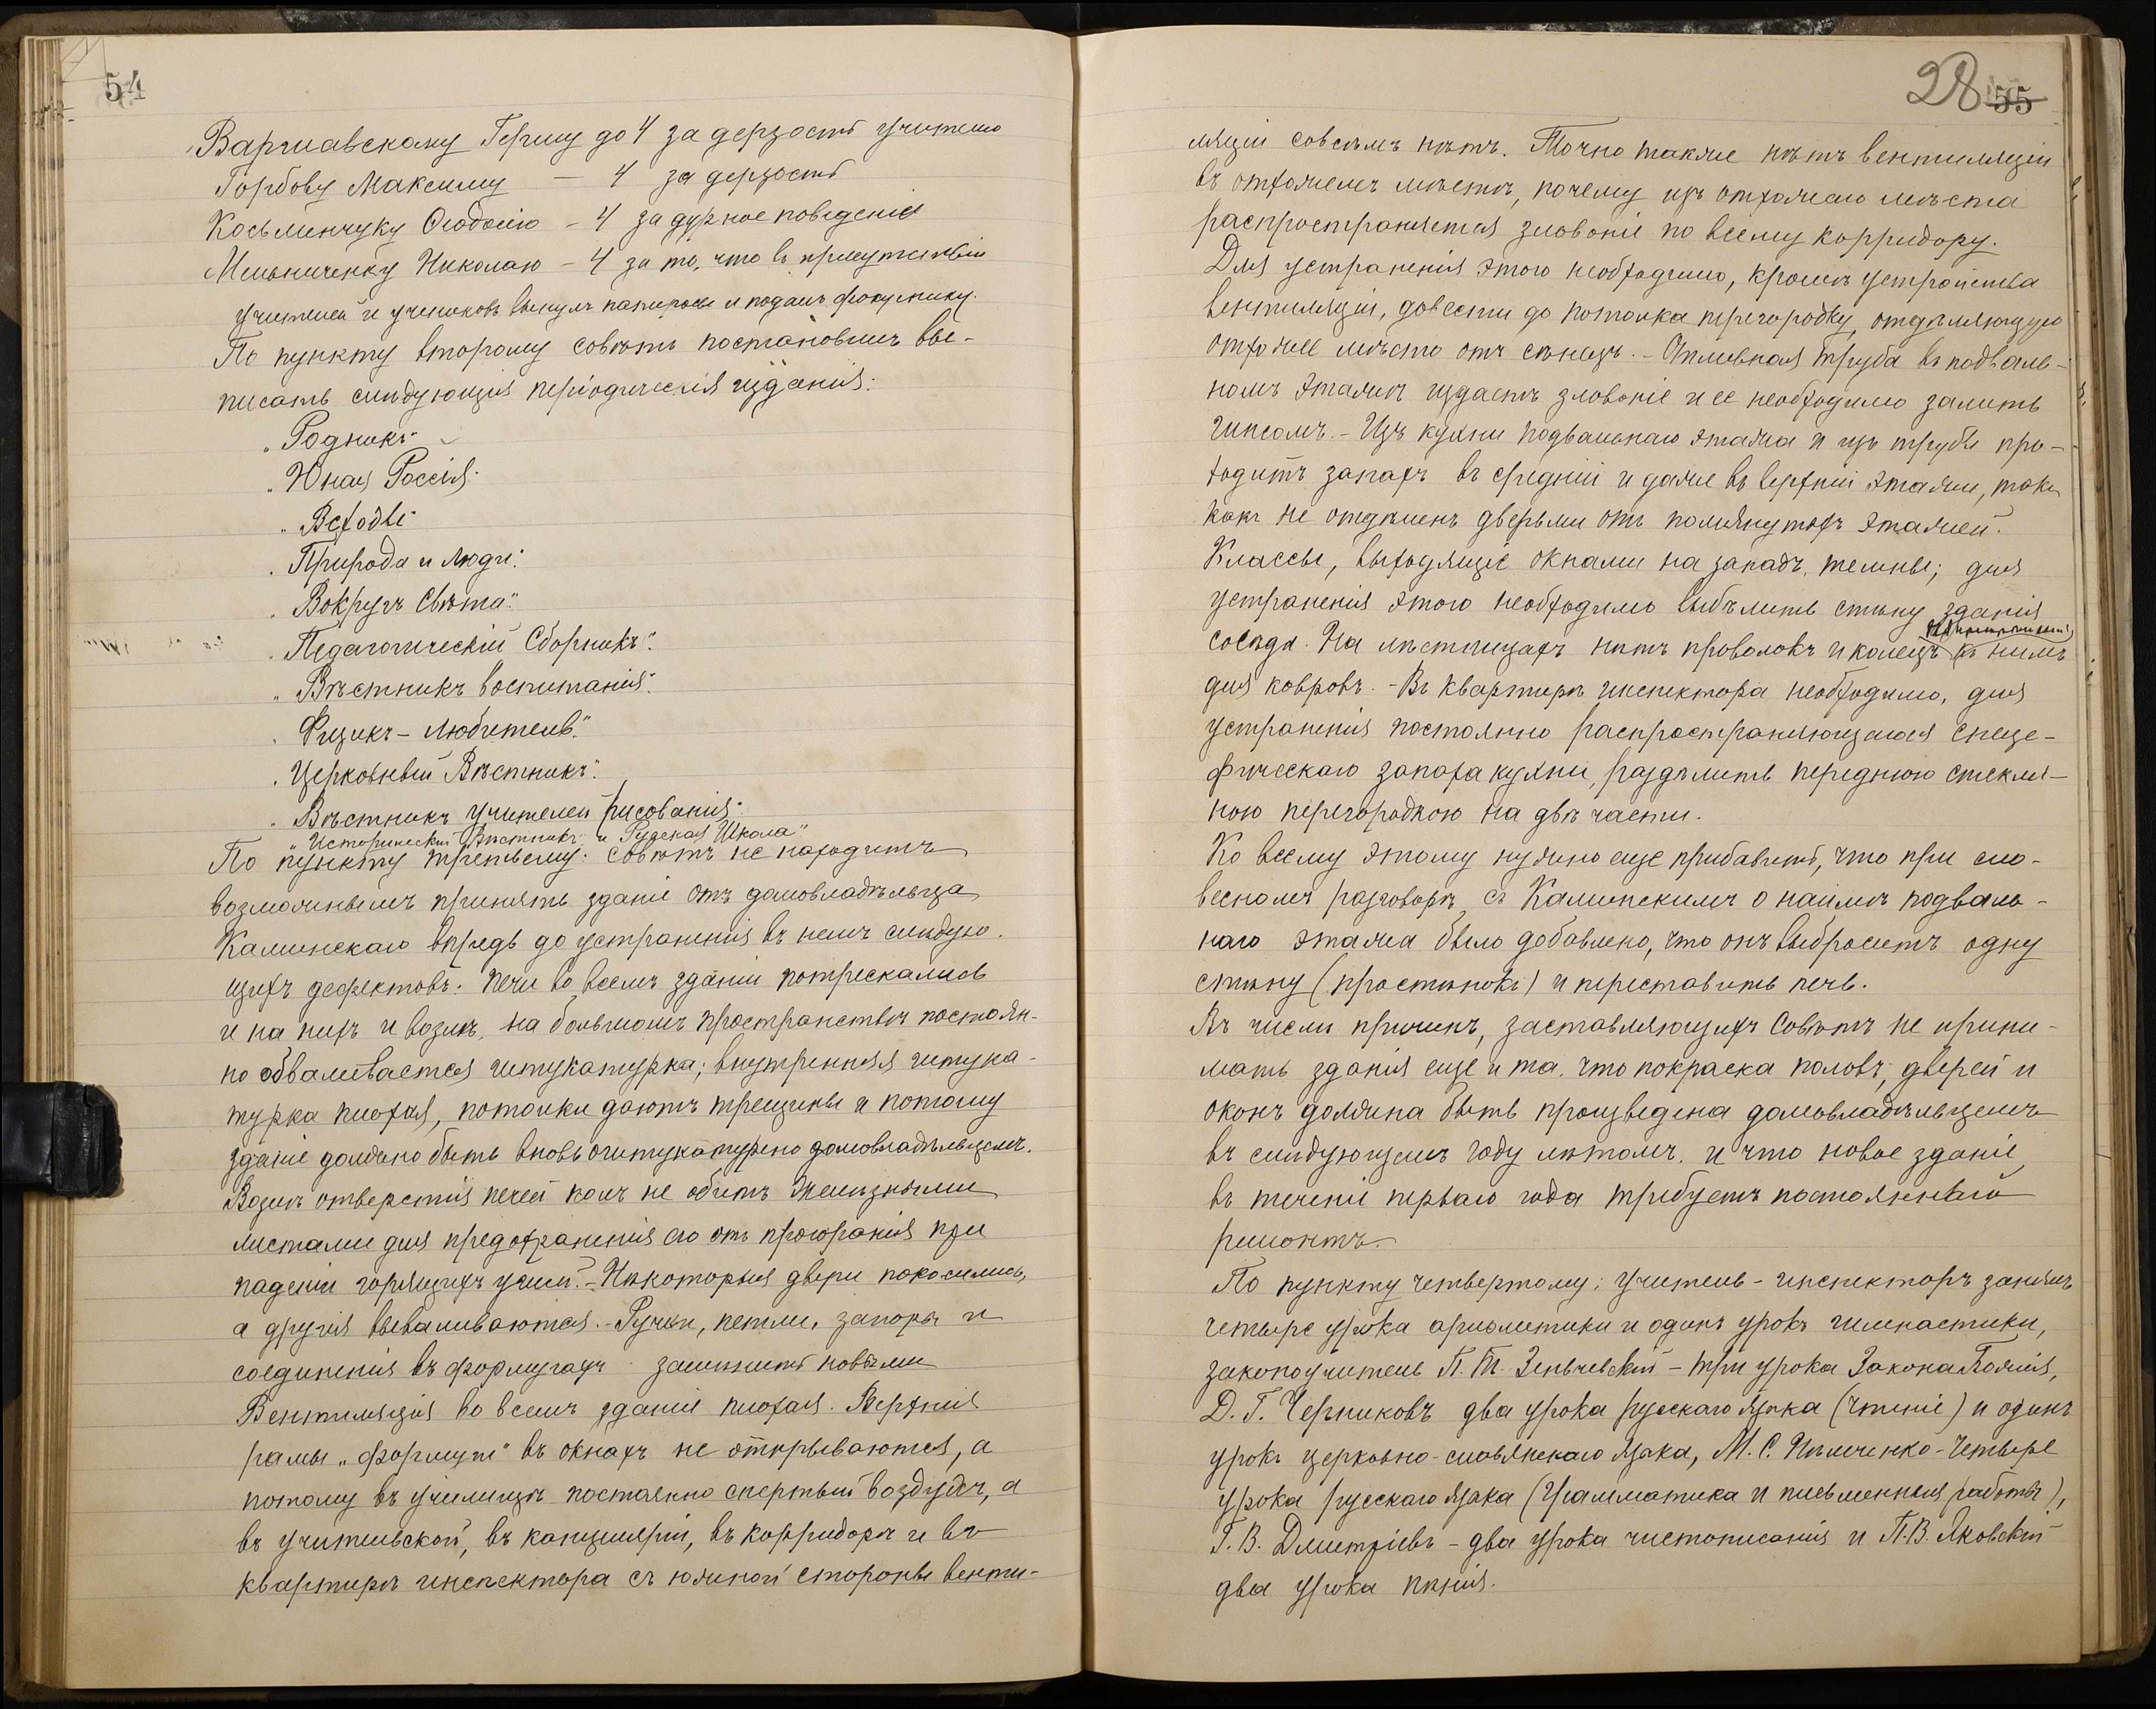 54
Варшавскому Гершу до 4 за дерзость учителю
Горбову Максиму — 4 за дерзость
Косьминчуку Ѳеодосію – 4 за дурное поведеніе
Мельниченку Николаю – 4 за то, что въ присутствіи
учителей и учениковъ вынулъ папиросы и подалъ фокуснику.
По пункту второму совѣтъ постановилъ вы-
писать слѣдующія періодическія изданія:
„Родникъ"
„Юная Россія"
„Всходы"
„Природа и Люди"
„Вокругъ Свѣта"
„Педагогическій Сборникъ"
„Вѣстникъ воспитанія"
„Физикъ – Любитель"
„Церковный Вѣстникъ"
„Вѣстникъ учителей рисованія"
„Историческій Вѣстникъ" и „Русская Школа"
По пункту третьему: совѣтъ не находитъ
возможнымъ принять зданіе отъ домовладѣльца
Калинскаго впредь до устраненія въ немъ слѣдую-
щихъ дефектовъ: печи во всемъ зданіи потрескались
и на нихъ и возлѣ, на большомъ пространствѣ постоян-
но обваливается штукатурка; внутренняя штука-
турка плохая, потолки даютъ трещины и потому
зданіе должно быть вновь оштукатурено домовладѣльцемъ.
Возлѣ отверстія печей полъ не обитъ желѣзными
листами для предохраненія его отъ прогоранія при
паденіи горящихъ углей. – Нѣкоторыя двери покосились,
а другія вываливаются. – Ручки, петли, запоры и
соединенія въ формугахъ замѣнить новыми
Вентиляція во всемъ зданіи плохая. Верхнія
рамы „формуги" въ окнахъ не открываются, а
потому въ училищѣ постоянно спертый воздухъ, а
въ учительской, въ канцеляріи, въ корридорѣ и въ
квартирѣ инспектора съ южной стороны венти-
28 55
ляціи совсѣмъ нѣтъ. Точно также нѣтъ вентиляціи
въ отхожемъ мѣстѣ, почему изъ отхожаго мѣста
распространяется зловоніе по всему корридору.
Для устраненія этого необходимо, кромѣ устройства
вентиляціи, довести до потолка перегородку, отдѣляющую
отхожее мѣсто отъ сѣнецъ. – Отливная труба въ подваль-
номъ этажѣ издаетъ зловоніе и ее необходимо залить
гипсомъ. – Изъ кухни подвальнаго этажа и изъ трубы про-
ходитъ запахъ въ средній и даже въ верхній этажи, такъ
какъ не отдѣленъ дверьми отъ помянутыхъ этажей.
Классы, выходящіе окнами на западъ, темны; для
устраненія этого необходимо выбѣлить стѣну зданія
сосѣда. На лѣстницахъ нѣтъ проволокъ и колецъ къ нимъ
для ковровъ. – Въ квартирѣ инспектора необходимо, для
устраненія постоянно распространяющагося специ-
фическаго запаха кухни, раздѣлить переднюю стеклян-
ною перегородкою на двѣ части.
Ко всему этому нужно еще прибавить, что при сло-
весномъ разговорѣ съ Калинскимъ о наймѣ подваль-
наго этажа было добавлено, что онъ выброситъ одну
стѣну (простѣнокъ) и переставитъ печь.
Въ числѣ причинъ, заставляющихъ Совѣтъ не прини-
мать зданія еще и та, что покраска половъ, дверей и
оконъ должна быть произведена домовладѣльцемъ
въ слѣдующемъ году лѣтомъ, и что новое зданіе
въ теченіе перваго года требуетъ постоянный
ремонтъ.
По пункту четвертому: учитель – инспекторъ занялъ
четыре урока ариѳметики и одинъ урокъ гимнастики,
законоучитель П. Т. Зеньчевскій – три урока Закона Божія,
Д. Г. Черниковъ два урока русскаго языка (чтеніе) и одинъ
урокъ церковно-славянскаго языка, М. С. Ильченко – четыре
урока русскаго языка (грамматика и письменныя работы),
Г. В. Дмитріевъ – два урока чистописанія и П. В. Яковскій
два урока пѣнія.